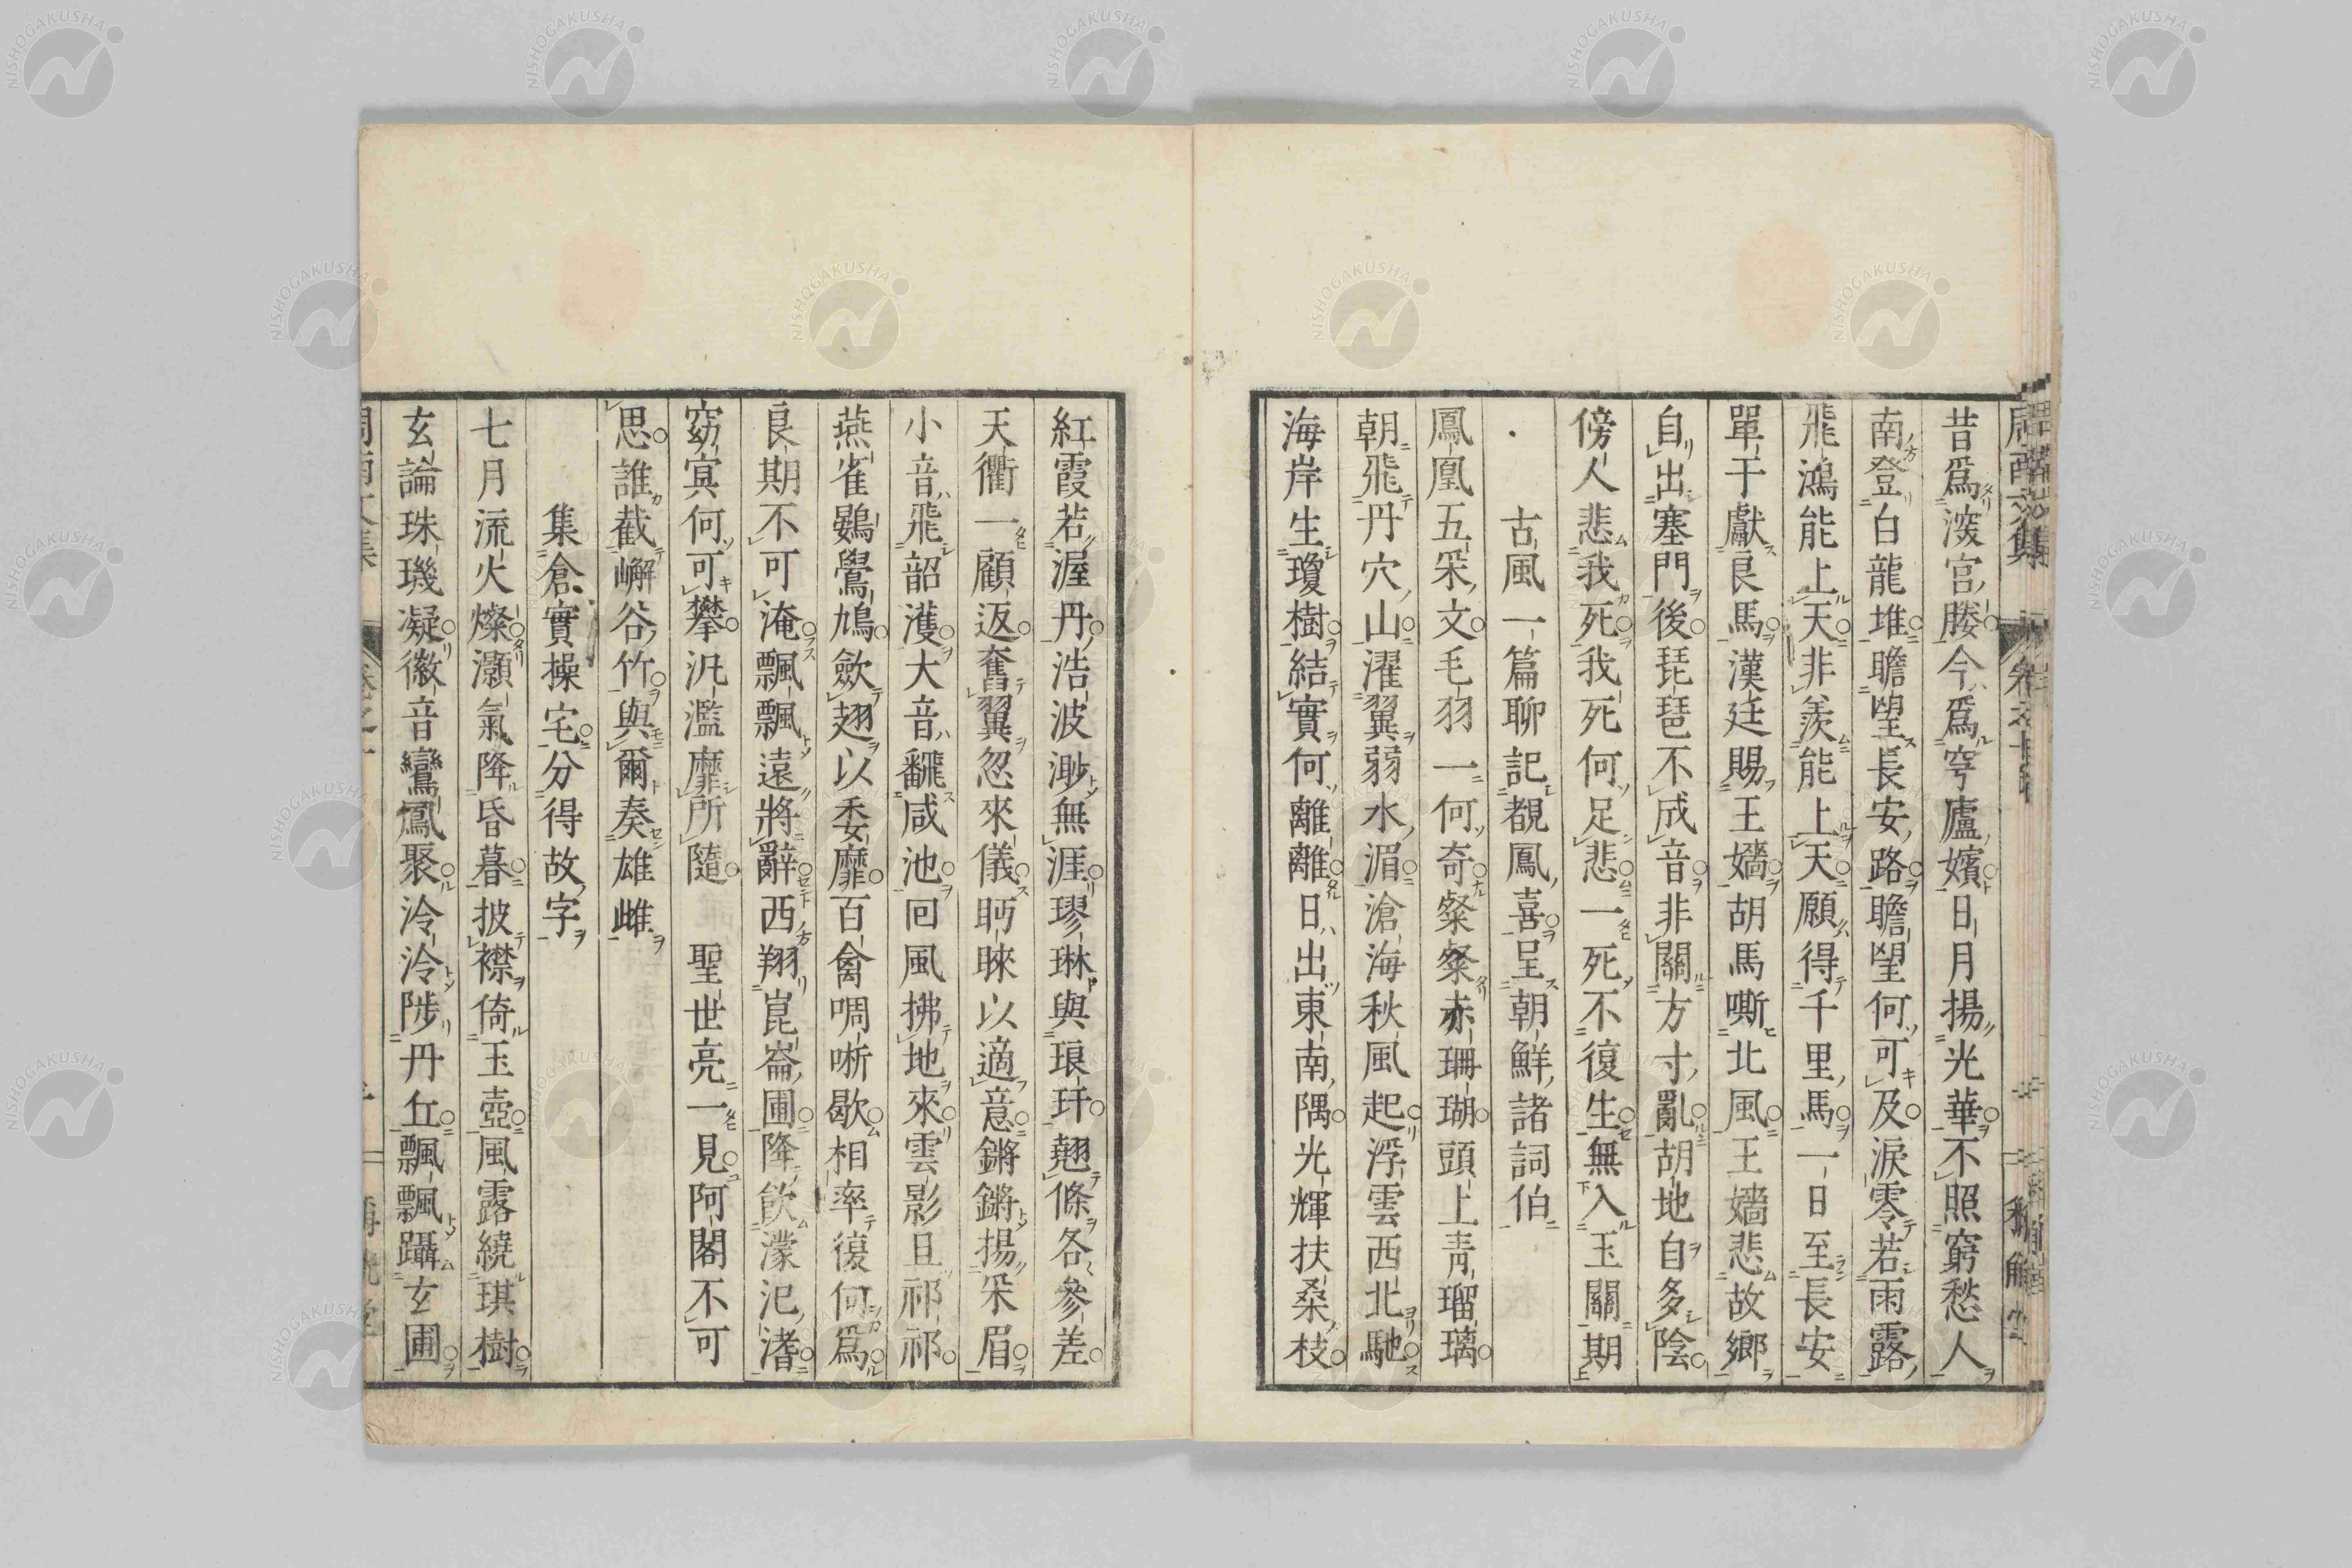 昔爲漢宮媵今爲穹廬嬪日月揚光華不照窮愁人
南登白龍堆瞻望長安路瞻望何可及淚零若雨露
飛鴻能上天非羨能上天願得千里馬一日至長安
單于獻良馬漢廷賜王嬙胡馬嘶北風王嬙悲故鄉
自出塞門後琵琶不成音非關方寸亂胡地自多陰
傍人悲我死我死何足悲一死不復生無入玉關期
古風一篇聊記覩鳳喜呈朝鮮諸詞伯
鳳凰五采文毛羽一何奇粲粲赤珊瑚頭上靑瑠璃
朝飛丹穴山濯翼弱水湄滄海秋風起浮雲西北馳
海岸生瓊樹結實何離離日出東南隅光輝扶桑枝
紅霞若渥丹浩波渺無涯璆琳與琅玕翹條各參差
天衢一顧返奮翼忽來儀眄睞以適意鏘鏘揚采眉
小音飛韶濩大音飜咸池回風拂地來雲影且祁祁
燕雀鷃鷽鳩歛翅以委靡百禽啁哳歇相率復何爲
良期不可淹飄飄遠將辭西翔崑崙圃降飮濛汜渚
窈冥何可攀汎濫靡所隨 聖世亮一見阿閣不可
思誰截嶰谷竹與爾奏雄雌
集倉實操宅分得故字
七月流火燦灝氣降昏暮披襟倚玉壺風露繞琪樹
玄論珠璣凝徽音鸞鳳聚泠泠陟丹丘飄飄躡玄圃